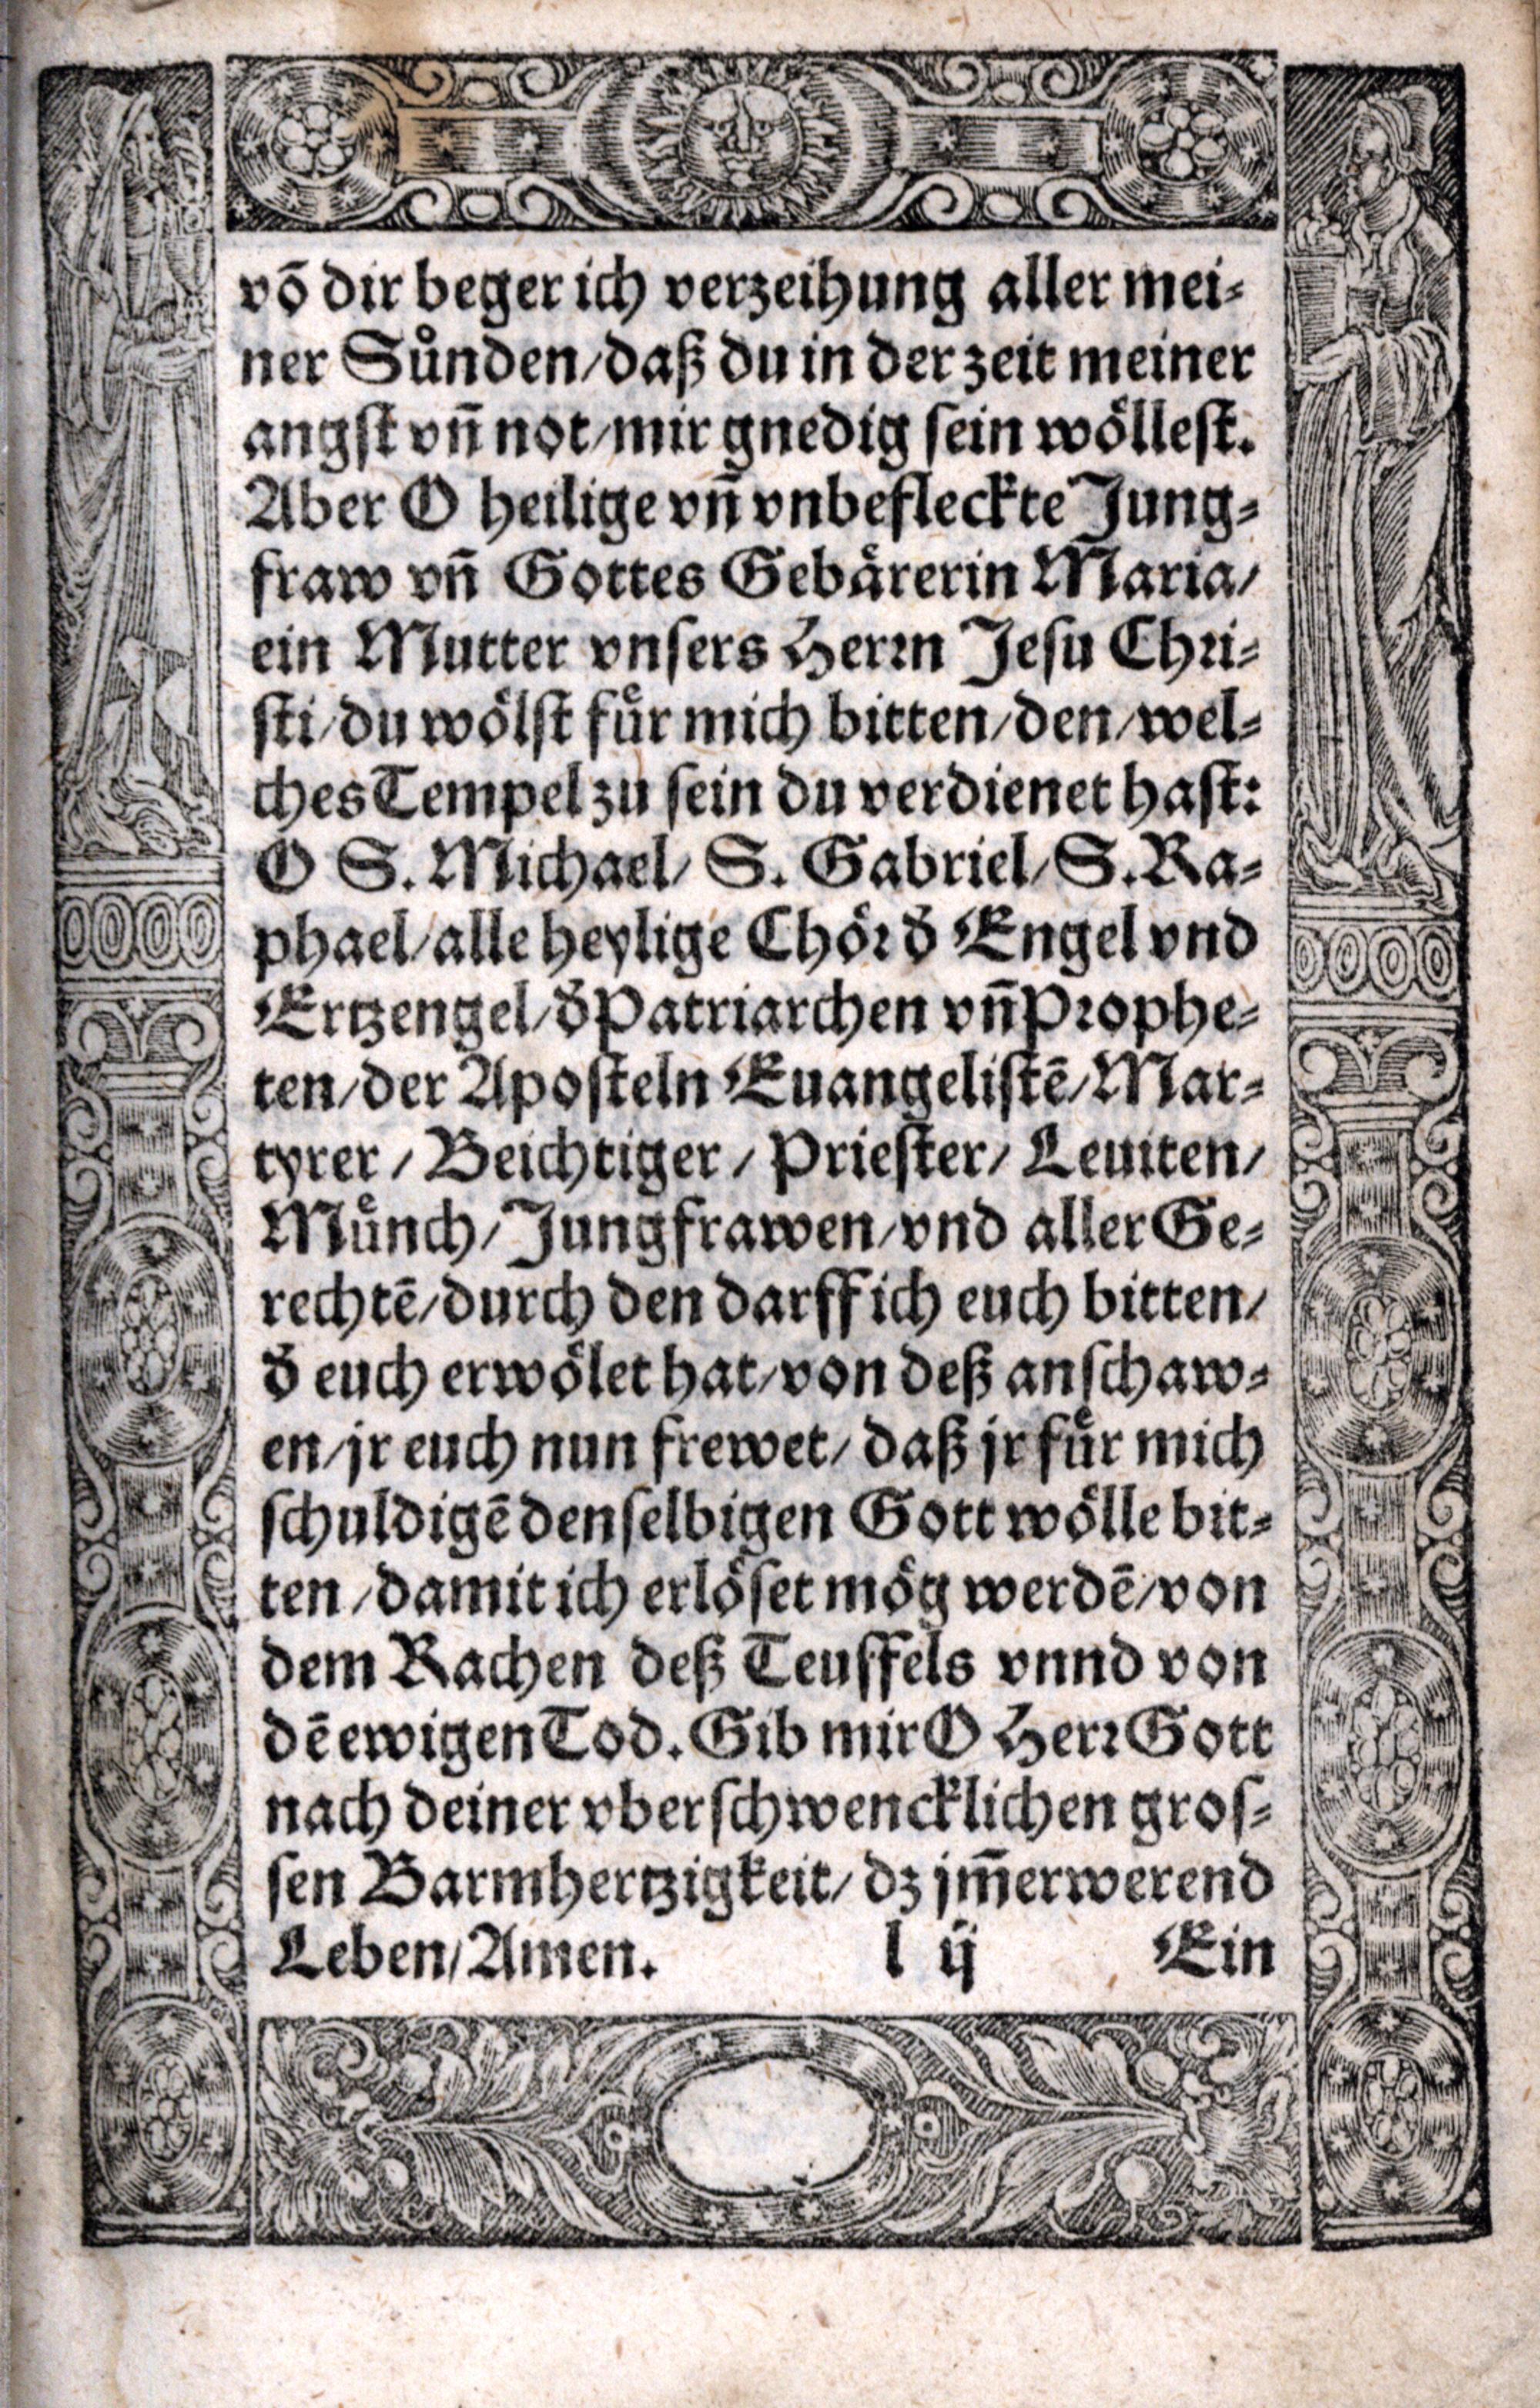 võ dir beger ich verzeihung aller mei⸗
ner Sůnden/daß du in der zeit meiner
angst vñ not/mir gnedig sein wöllest.
Aber O heilige vñ vnbefleckte Jung⸗
fraw vñ Gottes Gebärerin Maria/
ein Mutter vnsers Herrn Jesu Chri⸗
sti/du wölst für mich bitten/den/wel⸗
ches Tempel zu sein du verdienet hast:
O S. Michael/ S. Gabriel/S. Ra⸗
phael/alle heylige Chör đ Engel vnd
Ertzengel/đ Patriarchen vñ Prophe⸗
ten/der Aposteln Euangelistẽ/Mar⸗
tyrer / Beichtiger / Priester/ Leuiten/
Münch/Jungfrawen/vnd aller Ge⸗
rechtẽ/durch den darff ich euch bitten/
đ euch erwölet hat/von deß anschaw⸗
en/jr euch nun frewet/ daß jr für mich
schuldigẽ denselbigen Gott wölle bit⸗
ten /damit ich erlöset mög werdẽ/von
dem Rachen deß Teuffels vnnd von
dẽ ewigen Tod. Gib mir O Herr Gott
nach deiner vberschwencklichen gros⸗
sen Barmhertzigkeit/ dz jm̃erwerend
Leben/Amen. l ij Ein